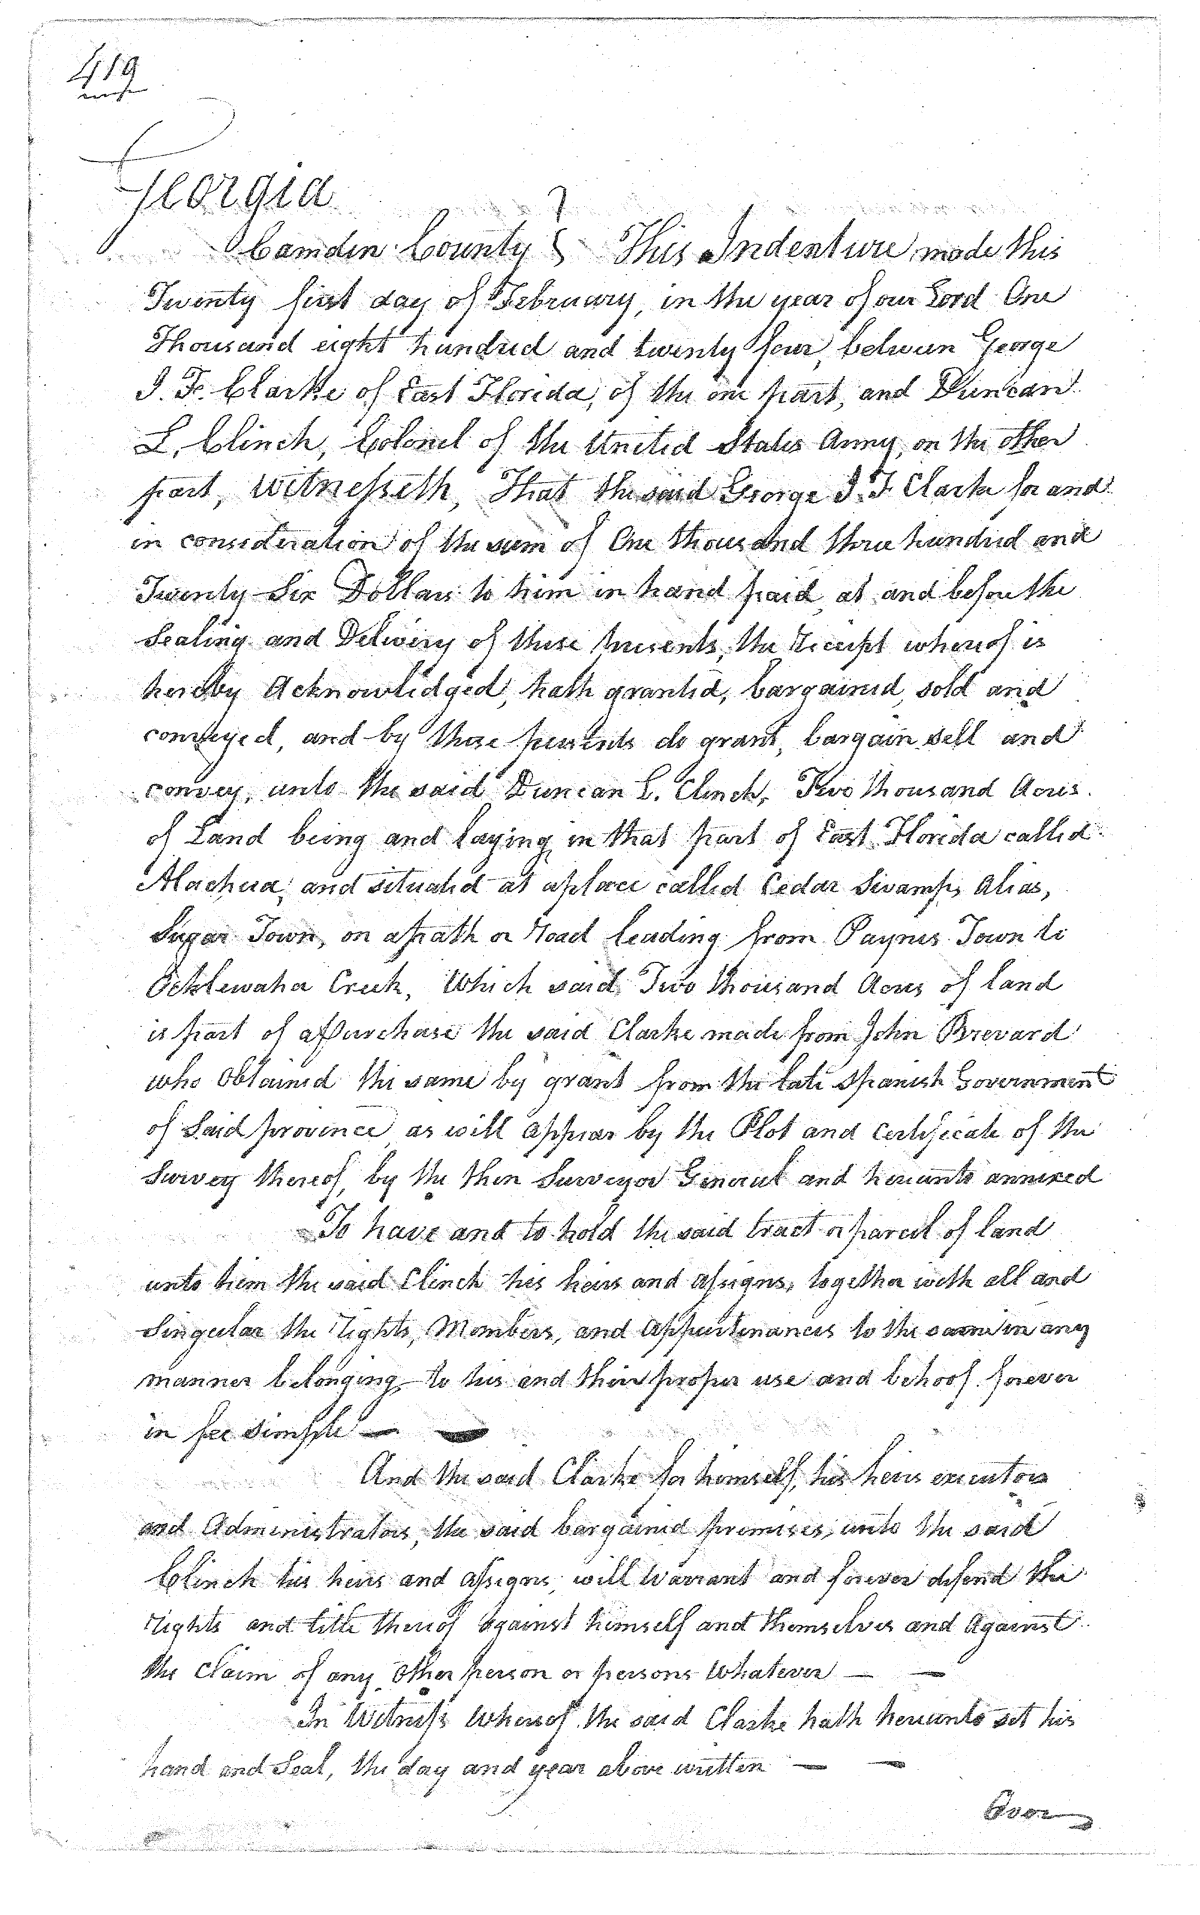 419
Georgia
Camden County } This Indenture made this
Twenty first day of February, in the year of our Lord One
Thousand eight hundred and twenty four, between George
J. F. Clarke of East Florida, of the one part, and Duncan
L. Clinch, Colonel of the United States Army, on the other
part, Witnesseth, That the said George J. F. Clarke for and
in consideration of the sum of One thousand three hundred and
Twenty Six Dollars to him in hand paid, at and before the
Sealing and Delivery of these presents, the receipt whereof is
hereby Acknowledged, hath granted, bargained, sold and
conveyed, and by these presents do grant, bargain sell and
convey, unto the said Duncan L. Clinch, Two thousand Acres
of Land being and laying in that part of East Florida called
Alachua, and situated at a place called Cedar Swamp, Alias,
Sugar Town, on a path or road leading from Paynes Town to
Ocklewaha Creek, Which said Two thousand Acres of land
is part of a Purchase the said Clarke made from John Brevard
who obtained the same by grant from the late Spanish Government
of Said province as will appear by the Plot and certificate of the
Survey thereof, by the then Surveyor General and hereunto annexed
To have and to hold the said tract or parcel of land
unto him the said Clinch his heirs and assigns, together with all and
Singular the rights, Members, and Appurtenances to the same in any
manner belonging to his and their proper use and behoof forever
in fee simple —
And the said Clarke for himself, his heirs executors
and Administrators, the said bargained premises, unto the said
Clinch his heirs and assigns, will Warrant and forever defend the
rights and title thereof against himself and themselves and Against
the claim of any other person or persons whatever — —
In Witness Whereof the said Clarke hath hereunto set his
hand and Seal, the day and year above written — —
Over